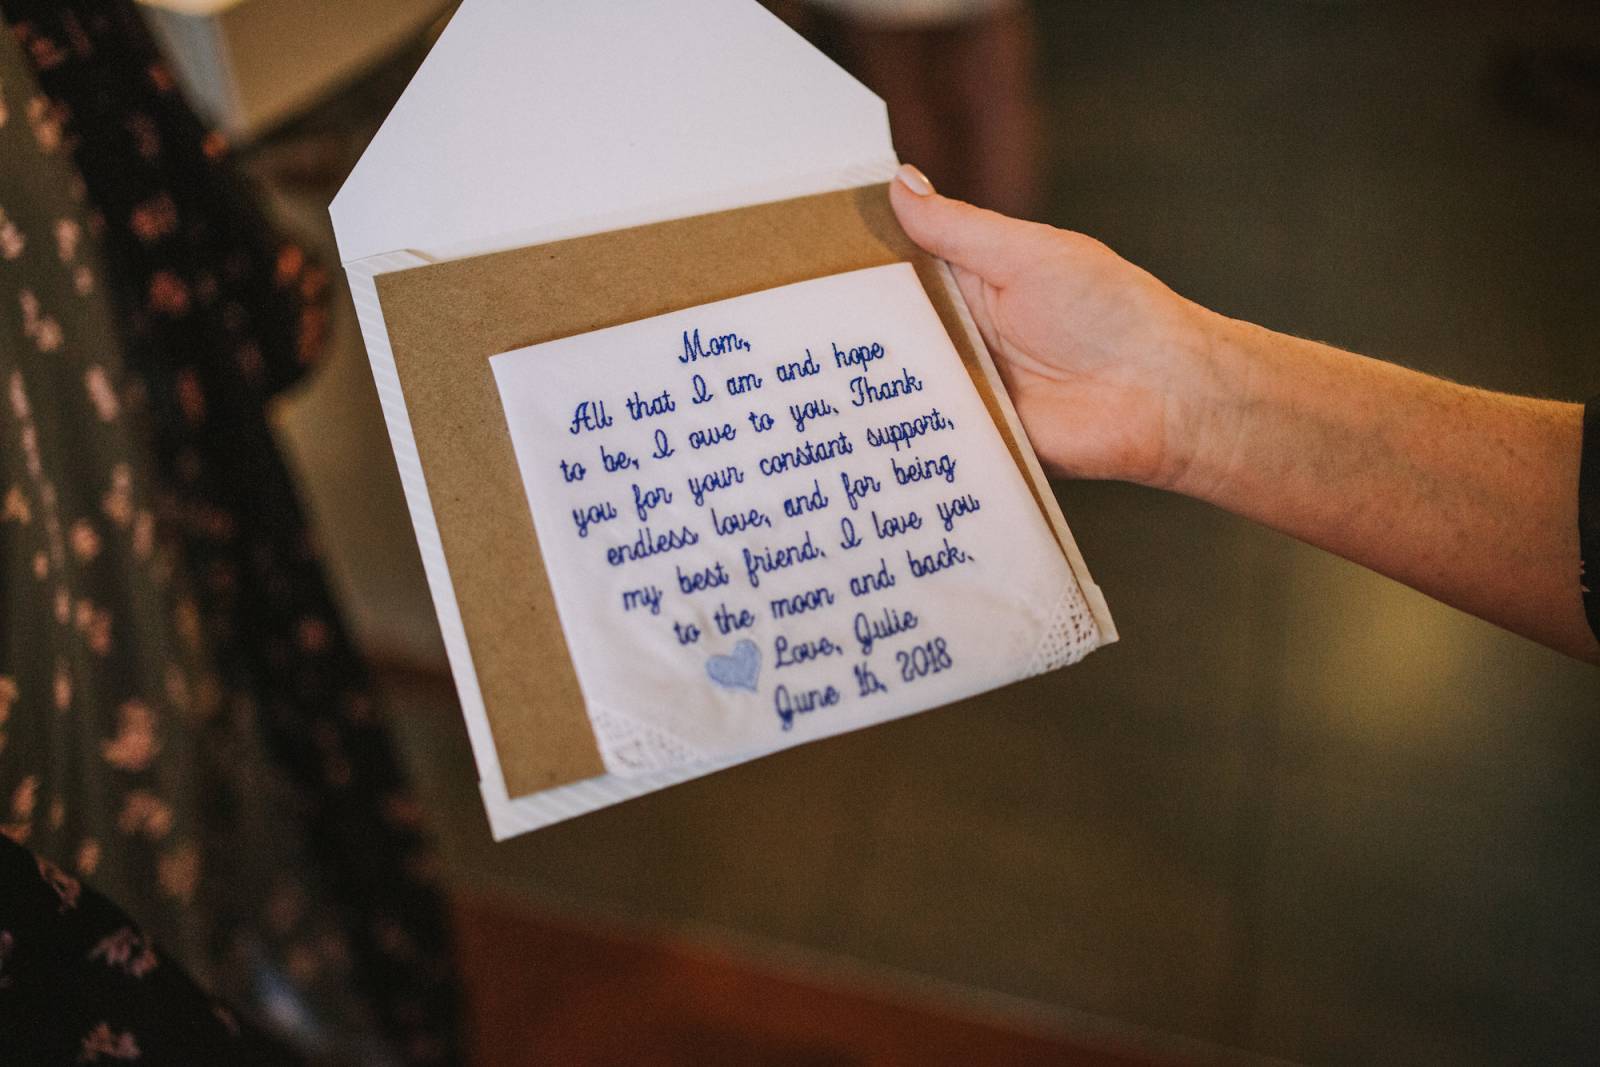 Mom,
All that I am and hope
to be, I owe to you. Thank
you for your constant support,
endless love, and for being
my best friend. I love you
to the moon and back.
Love, Julie
June 16, 2018